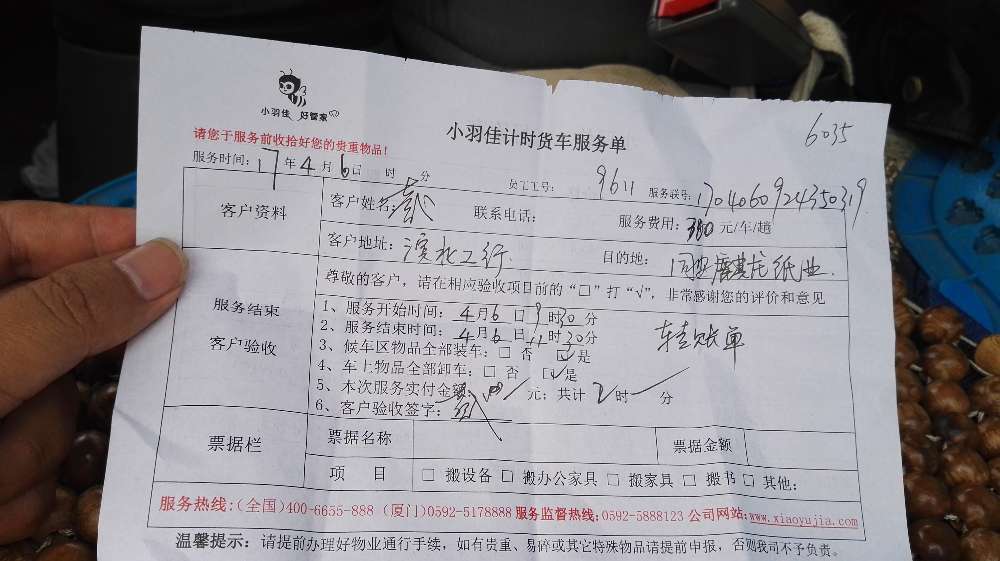 小羽佳 好管家
小羽佳计时货车服务单
6035
请您于服务前收拾好您的贵重物品!
服务时间: 17年4月6日 时 分
员工工号: 9611 服务联号: 1704060924350319
客户资料
客户姓名: 联系电话: 服务费用: 380 元/车/趟
客户地址: 滨北工行 目的地:
服务结束
客户验收
尊敬的客户，请在相应验收项目前的“□”打“√”，非常感谢您的评价和意见
1、服务开始时间: 4月6日9时30分
2、服务结束时间: 4月6日11时30分
转账单
3、候车区物品全部装车: □ 否 ☑是
4、车上物品全部卸车: □ 否 ☑是
5、本次服务实付金额: 元; 共计 2 时 分
6、客户验收签字:
票据栏
票据名称 票据金额
项 目 □ 搬设备 □ 搬办公家具 □ 搬家具 □ 搬书 □ 其他:
服务热线:(全国)400-6655-888 (厦门)0592-5178888 服务监督热线:0592-5888123 公司网站:www.xiaoyujia.com
温馨提示: 请提前办理好物业通行手续，如有贵重、易碎或其它特殊物品请提前申报，否则我司不予负责。